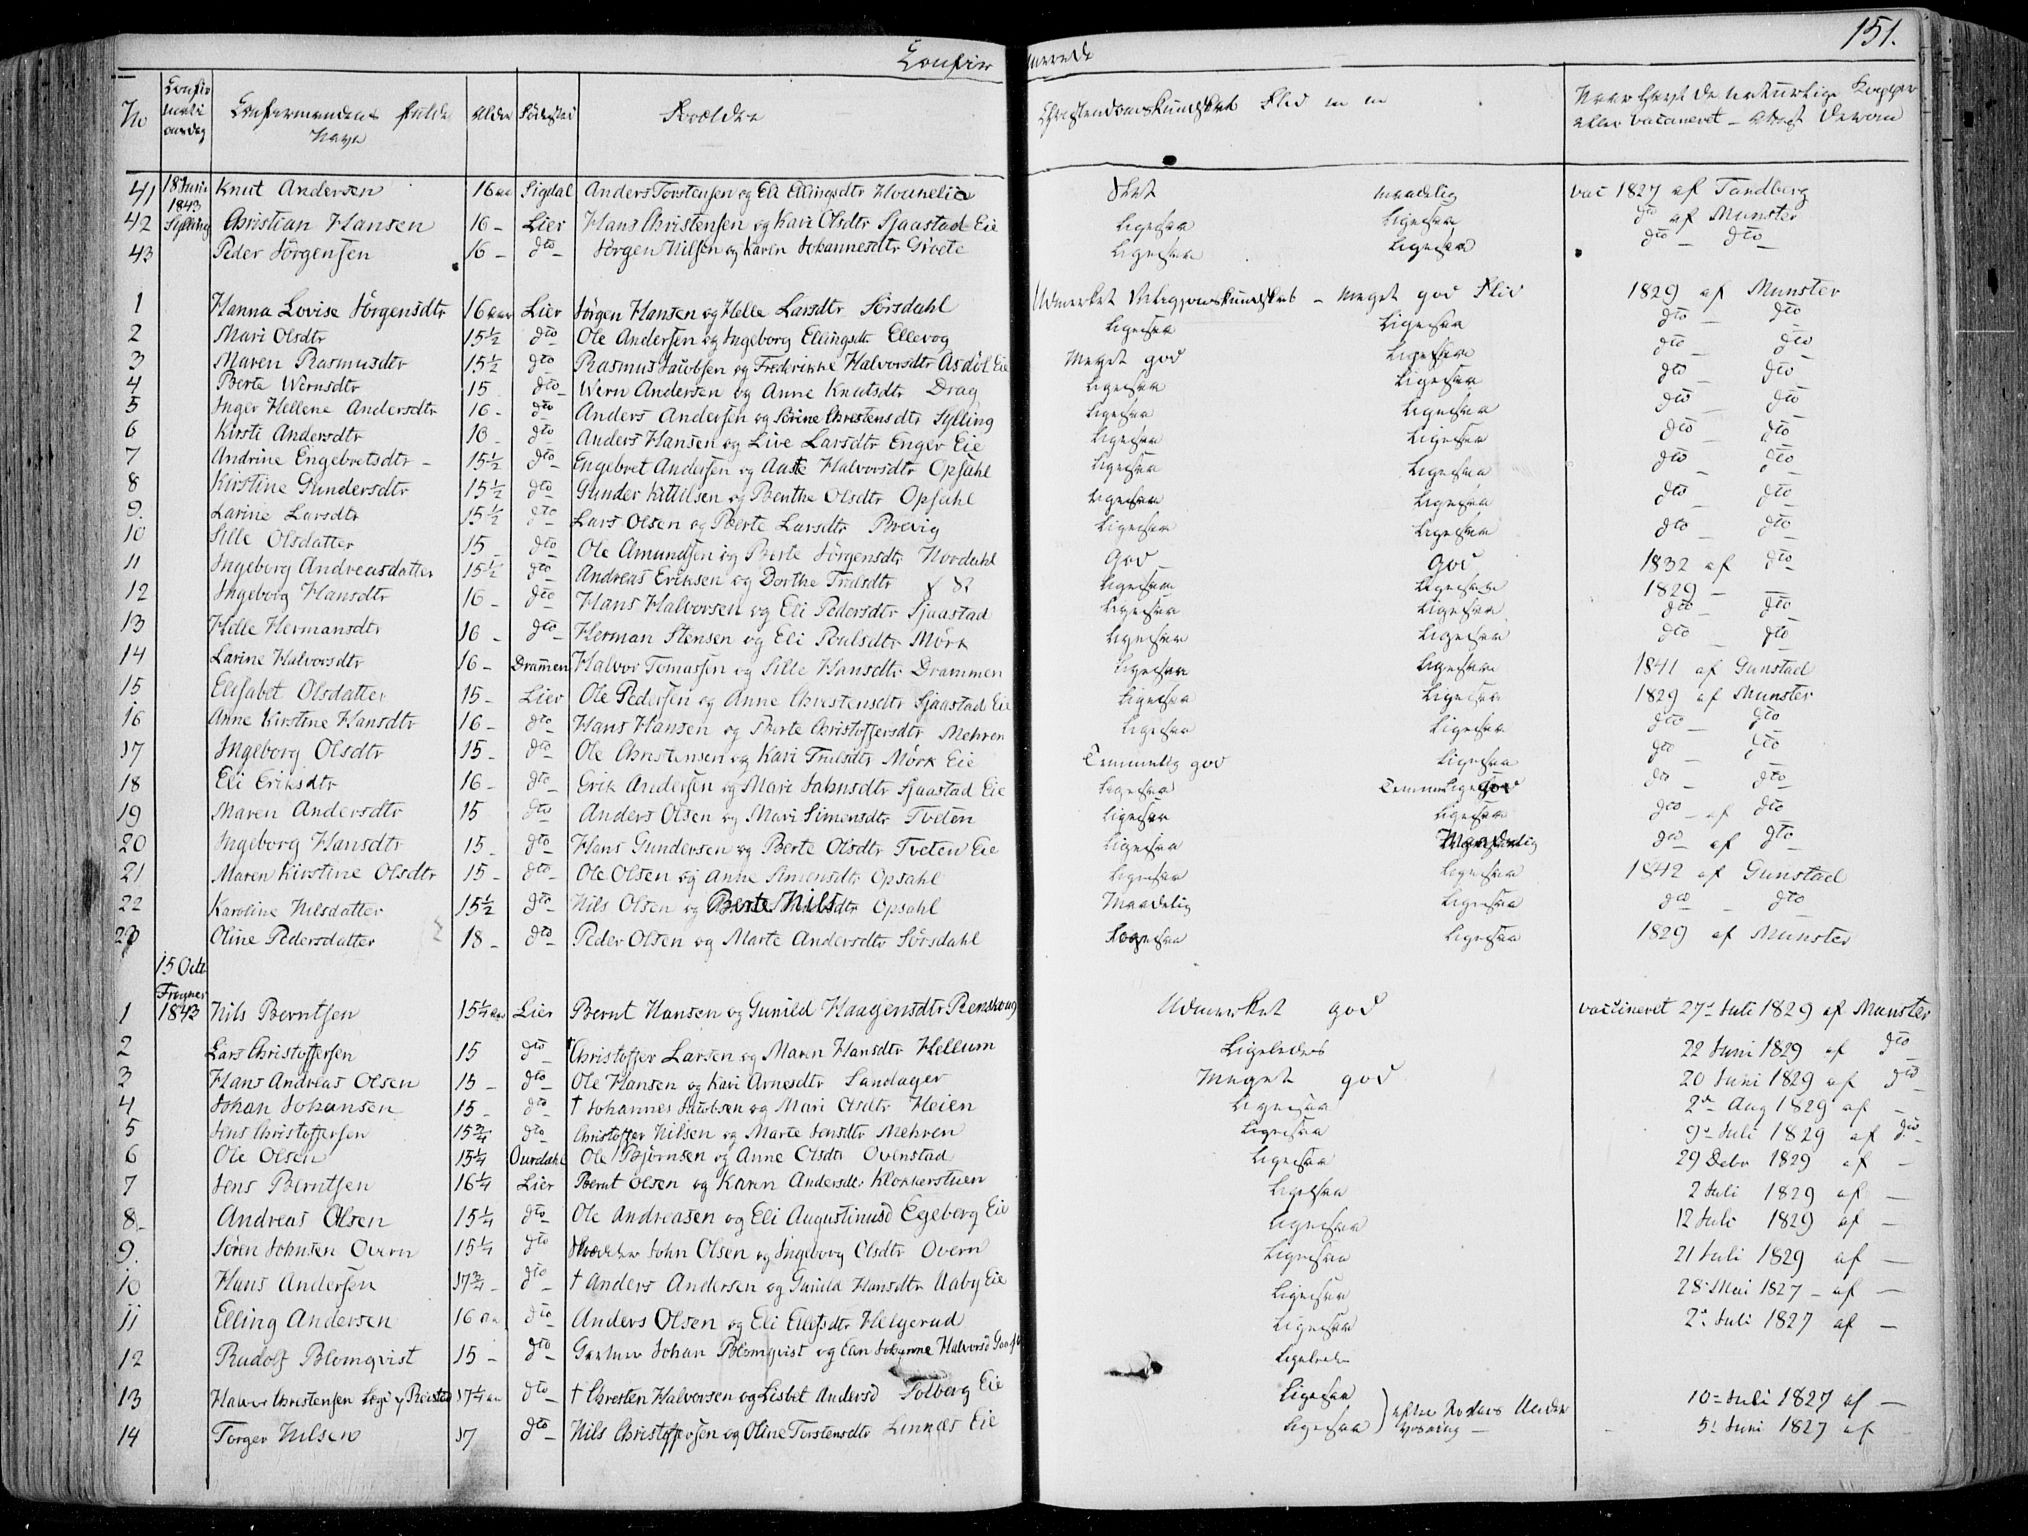 151.
Confirmerede
No Confirmationsdag Confirmandens fulde Navn Alder Fødested Forældre Christendomskundskab Flid m m Naar havt de naturlige Kopper eller vaccineret
41 18 Juni Knut Andersen 16 Sigdal Anders Torstensen og Eli Ellingsdtr maadelig vac 1827 af Tandberg
1843
42 Sylling Christian Hansen 16 - Lier Hans Christensen og Kari Olsdtr Sjaastad Eie Ligesaa Ligesaa dto af Munster
43 Peder Jörgensen 16 - dto Jörgen Nilsen og Karen Johannesdtr Groete Ligesaa Ligesaa dto - dto
1 Hanna Lovise Jörgensdtr 16 aar Lier Jörgen Hansen og Helle Larsdtr Sörsdahl Udmerket Religjonskundskab - Meget god Flid 1829 af Munster
2 Mari Olsdtr 15½ dto Ole Andersen og Ingeborg Ellingsdtr Ellevog Ligesaa Ligesaa dto - dto
3 Maren Rasmusdtr 15½ dto Rasmus Jacobsen og Frederikke Halvorsdtr Asdöl Eie Meget god Ligesaa dto dto
4 Berte Wernsdtr 15 dto Wern Andersen og Anne Knutsdtr Drag Ligesaa Ligesaa dto - dto
5 Inger Hellene Andersdtr 16 - dto Anders Andersen og Sörine Christensdtr Sylling Ligesaa Ligesaa dto dto
6 Kirsti Andersdtr 16 - dto Anders Hansen og Live Larsdtr Enger Eie Ligesaa Ligesaa dto - dto
7 Andrine Engebretsdtr - 15½ dto Engebret Andersen og Aaste Halvorsdtr Opsahl Ligesaa Ligesaa dto - dto
8 Kirstine Gundersdtr 15½ dto Gunder Kittilsen og Benthe Olsdtr Opsahl Ligesaa Ligesaa dto - dto
9. Larine Larsdtr 15½ dto Lars Olsen og Berte Larsdtr Brevig Ligesaa Ligesaa dto - dto
10 Sille Olsdatter 15 - dto Ole Amundsen og Berte Jörgensdtr Nordahl God God 1832 af dto
11 Ingeborg Andreasdatter 15½ dto Andreas Eriksen og Dorthe Trulsdtr Ligesaa Ligesaa 1829 -
12 Ingeborg Hansdtr 16 - dto Hans Halvorsen og Eli Pedersdtr Sjaastad Ligesaa Ligesaa dto - dto
13 Hille Hermansdtr 16 - dto Herman Stensen og Eli Poulsdtr Mörk Ligesaa Ligesaa dto - dto
14 Larine Halvorsdtr 16 - Dramen Halvor Tomassen og Sille Hansdtr Drammen Ligesaa Ligesaa 1841 af Gunstad
15 Elisabet Olsdatter 15 - Lier Ole Pedersen og Anne Christensdtr Sjaastad Eie Ligesaa Ligesaa 1829 af Munster
16 Anne Kirstine Hansdtr 16 - dto Hans Hansen og Berte Christoffersdtr Mehren Ligesaa Ligesaa dto dto
17 Ingeborg Olsdtr 15 - dto Ole Christensen og Kari Trulsdtr Mörk Eie Temmelig god Ligesaa dto dto
18 Eli Eriksdtr 16 - dto Erik Andersen og Mari Jahnsdtr Sjaastad Eie Ligesaa Temmelig god dto - dto
19 Maren Andersdtr 15 dto Anders Olsen og Mari Simensdtr Tveten Ligesaa Ligesaa dto - af dto
20 Ingeborg Hansdtr 15 - dto Hans Gundersen og Berte Olsdtr Tveten Eie Ligesaa Maadelig dto af dto
21 Maren Kirstine Olsdtr 15 - dto Ole Olsen og Anne Simensdtr Opsahl Ligesaa Ligesaa 1842 af Gunstad
22 Karoline Nilsdatter 15½ dto Nils Olsen og Berte Nilsdtr Opsahl Maadelig Ligesaa dto - dto
23 Oline Pedersdatter 18 - dto Peder Olsen og Marte Andersdtr Sörsdahl Ligesaa Ligesaa 1829 af Munster
15 Octb
Frogner
1 1843 Nils Berntsen 15¼ aar Lier Bernt Hansen og Gunild Haagensdtr Renskoug Udmerket god vaccineret 27 Juli 1829 af Munster
2 Lars Christoffersen 15 dto † Christoffer Larsen og Maren Hansdtr Hellum Ligeledes 22 Juni 1829 af dto
3 Hans Andreas Olsen 15 - dto Ole Hansen og Kari Arnesdtr Landager Meget god 20 Juni 1829 af dto
4 Johan Johansen 15 - dto † Johannes Jacobsen og Mari Olsdtr Heien Ligesaa 2 Aug 1829 af -
5 Jens Christoffersen 15¾ dto Christoffer Nilsen og Marte Jensdtr Mehren Ligesaa 9 Juli 1829 af dto
6 Ole Olsen 15¼ Ourdahl Ole Bjørnsen og Anne Olsdtr Ovenstad Ligesaa 29 Debr 1829 af -
7 Jens Berntsen 16¼ Lier Bernt Olsen og Karen Andersdtr Klokkerstuen Ligesaa 2 Juli 1829 af -
8 - Andreas Olsen 15¼ dto Ole Andreasen og Eli Augustinusd Egeberg Eie Ligesaa 12 Juli 1829 af -
9. Sören Johnsen Overn 15¼ dto John Olsen og Ingeborg Olsdtr Overn Ligesaa 21 Juli 1829 af -
10 Hans Andersen 17¾ - dto † Anders Andersen og Gunild Hansdtr Aaby Eie Ligesaa 28 Mai 1827 - af -
11 Elling Andersen 16 dto Anders Olsen og Eli Ellefsdtr Helgerud Ligesaa 2 Juli 1827 af -
12 Rudolf Blomqvist 15 - dto Gartner Johan Blomqvist og Johanne Halvorsd Ligeledes
13 Halvor Christensen 17¼ dto † Christen Halvorsen og Lisbet Andersd Solberg Eie Ligesaa 10 Juli 1827 af -
14 Torger Nilsen 17 dto Nils Christoffersen og Oline Torstensdtr Linnæs Eie Ligesaa 5 Juni 1827 af -